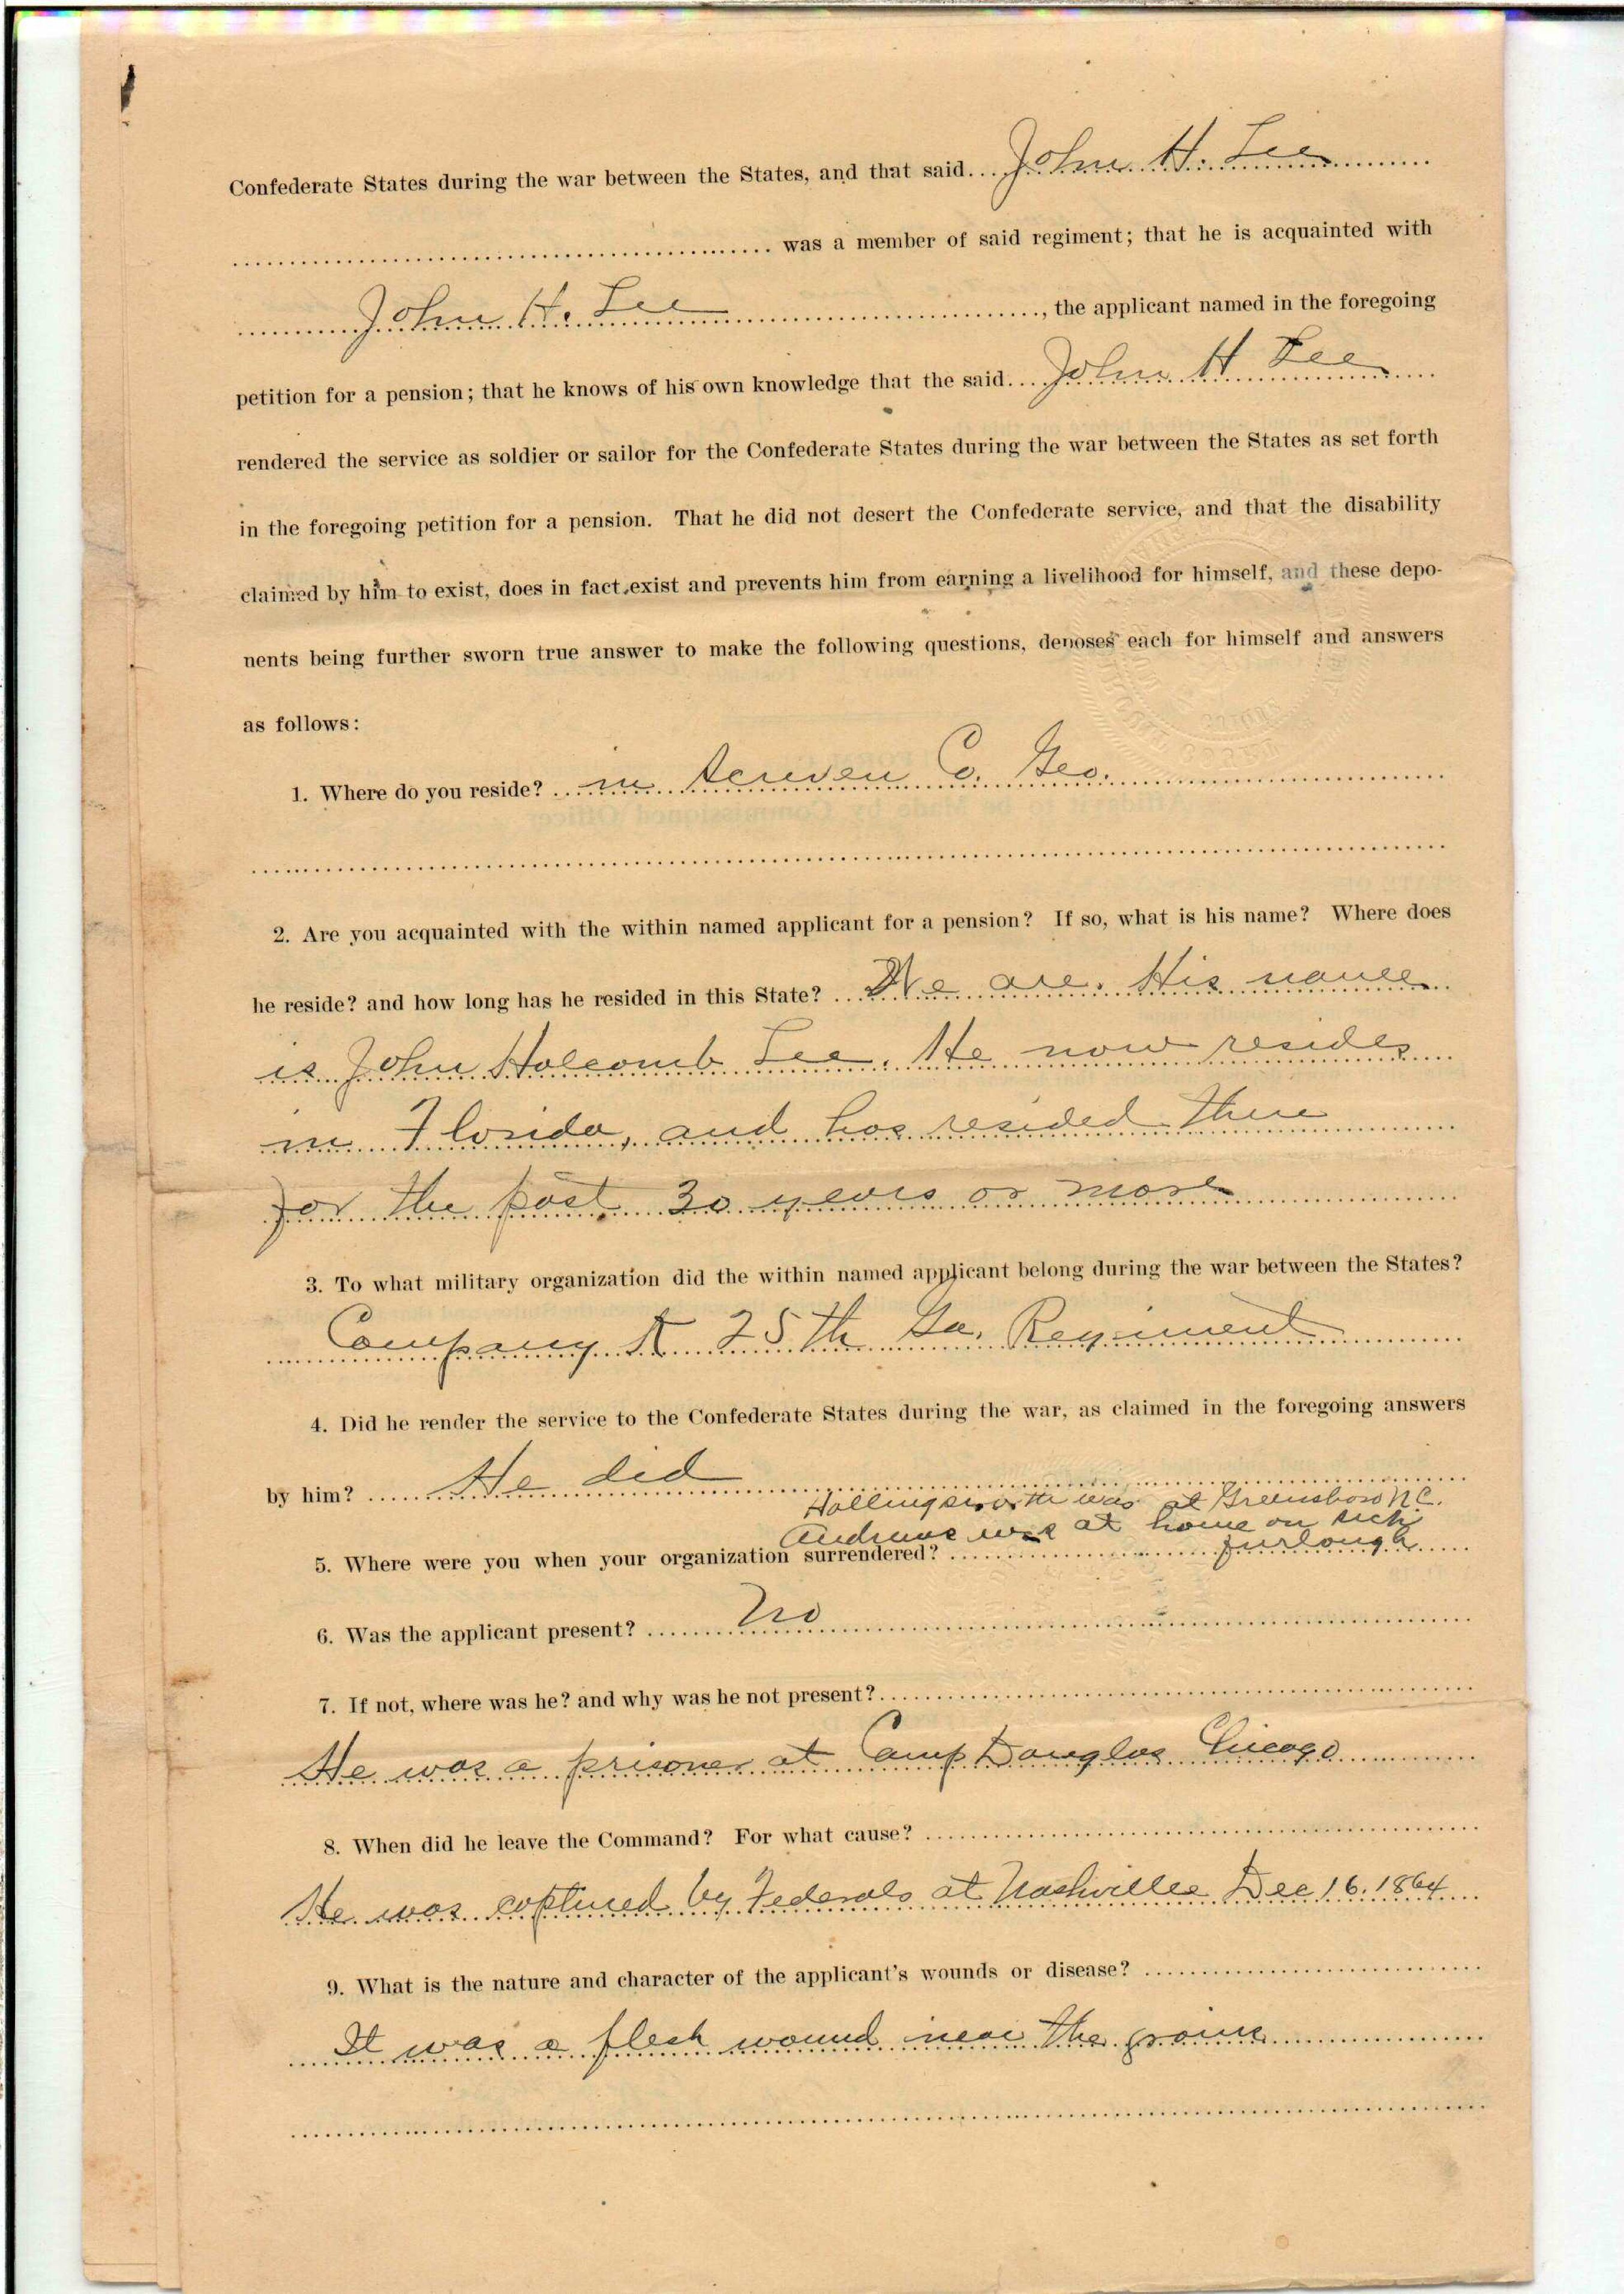 Confederate States during the war between the States, and that said John H. Lee
was a member of said regiment; that he is acquainted with
John H. Lee, the applicant named in the foregoing
petition for a pension; that he knows of his own knowledge that the said John H Lee
rendered the service as soldier or sailor for the Confederate States during the war between the States as set forth
in the foregoing petition for a pension. That he did not desert the Confederate service, and that the disability
claimed by him to exist, does in fact exist and prevents him from earning a livelihood for himself, and these depo-
nents being further sworn true answer to make the following questions, deposes each for himself and answers
as follows:
1. Where do you reside? in Screven Co. Geo.
2. Are you acquainted with the within named applicant for a pension? If so, what is his name? Where does
he reside? and how long has he resided in this State? We are. His name
is John Holcomb Lee. He now resides
in Florida, and has resided there
for the past 30 years or more
3. To what military organization did the within named applicant belong during the war between the States?
Company K 25th Ga. Regiment
4. Did he render the service to the Confederate States during the war, as claimed in the foregoing answers
by him? He did
Hollingsworth was at Greensboro N.C.
Andrews was at home on sick
5. Where were you when your organization surrendered? furlough
6. Was the applicant present? No
7. If not, where was he? and why was he not present?
He was a prisoner at Camp Douglas Chicago
8. When did he leave the Command? For what cause?
He was captured by Federals at Nashville Dec 16. 1864
9. What is the nature and character of the applicant's wounds or disease?
It was a flesh wound near the groin